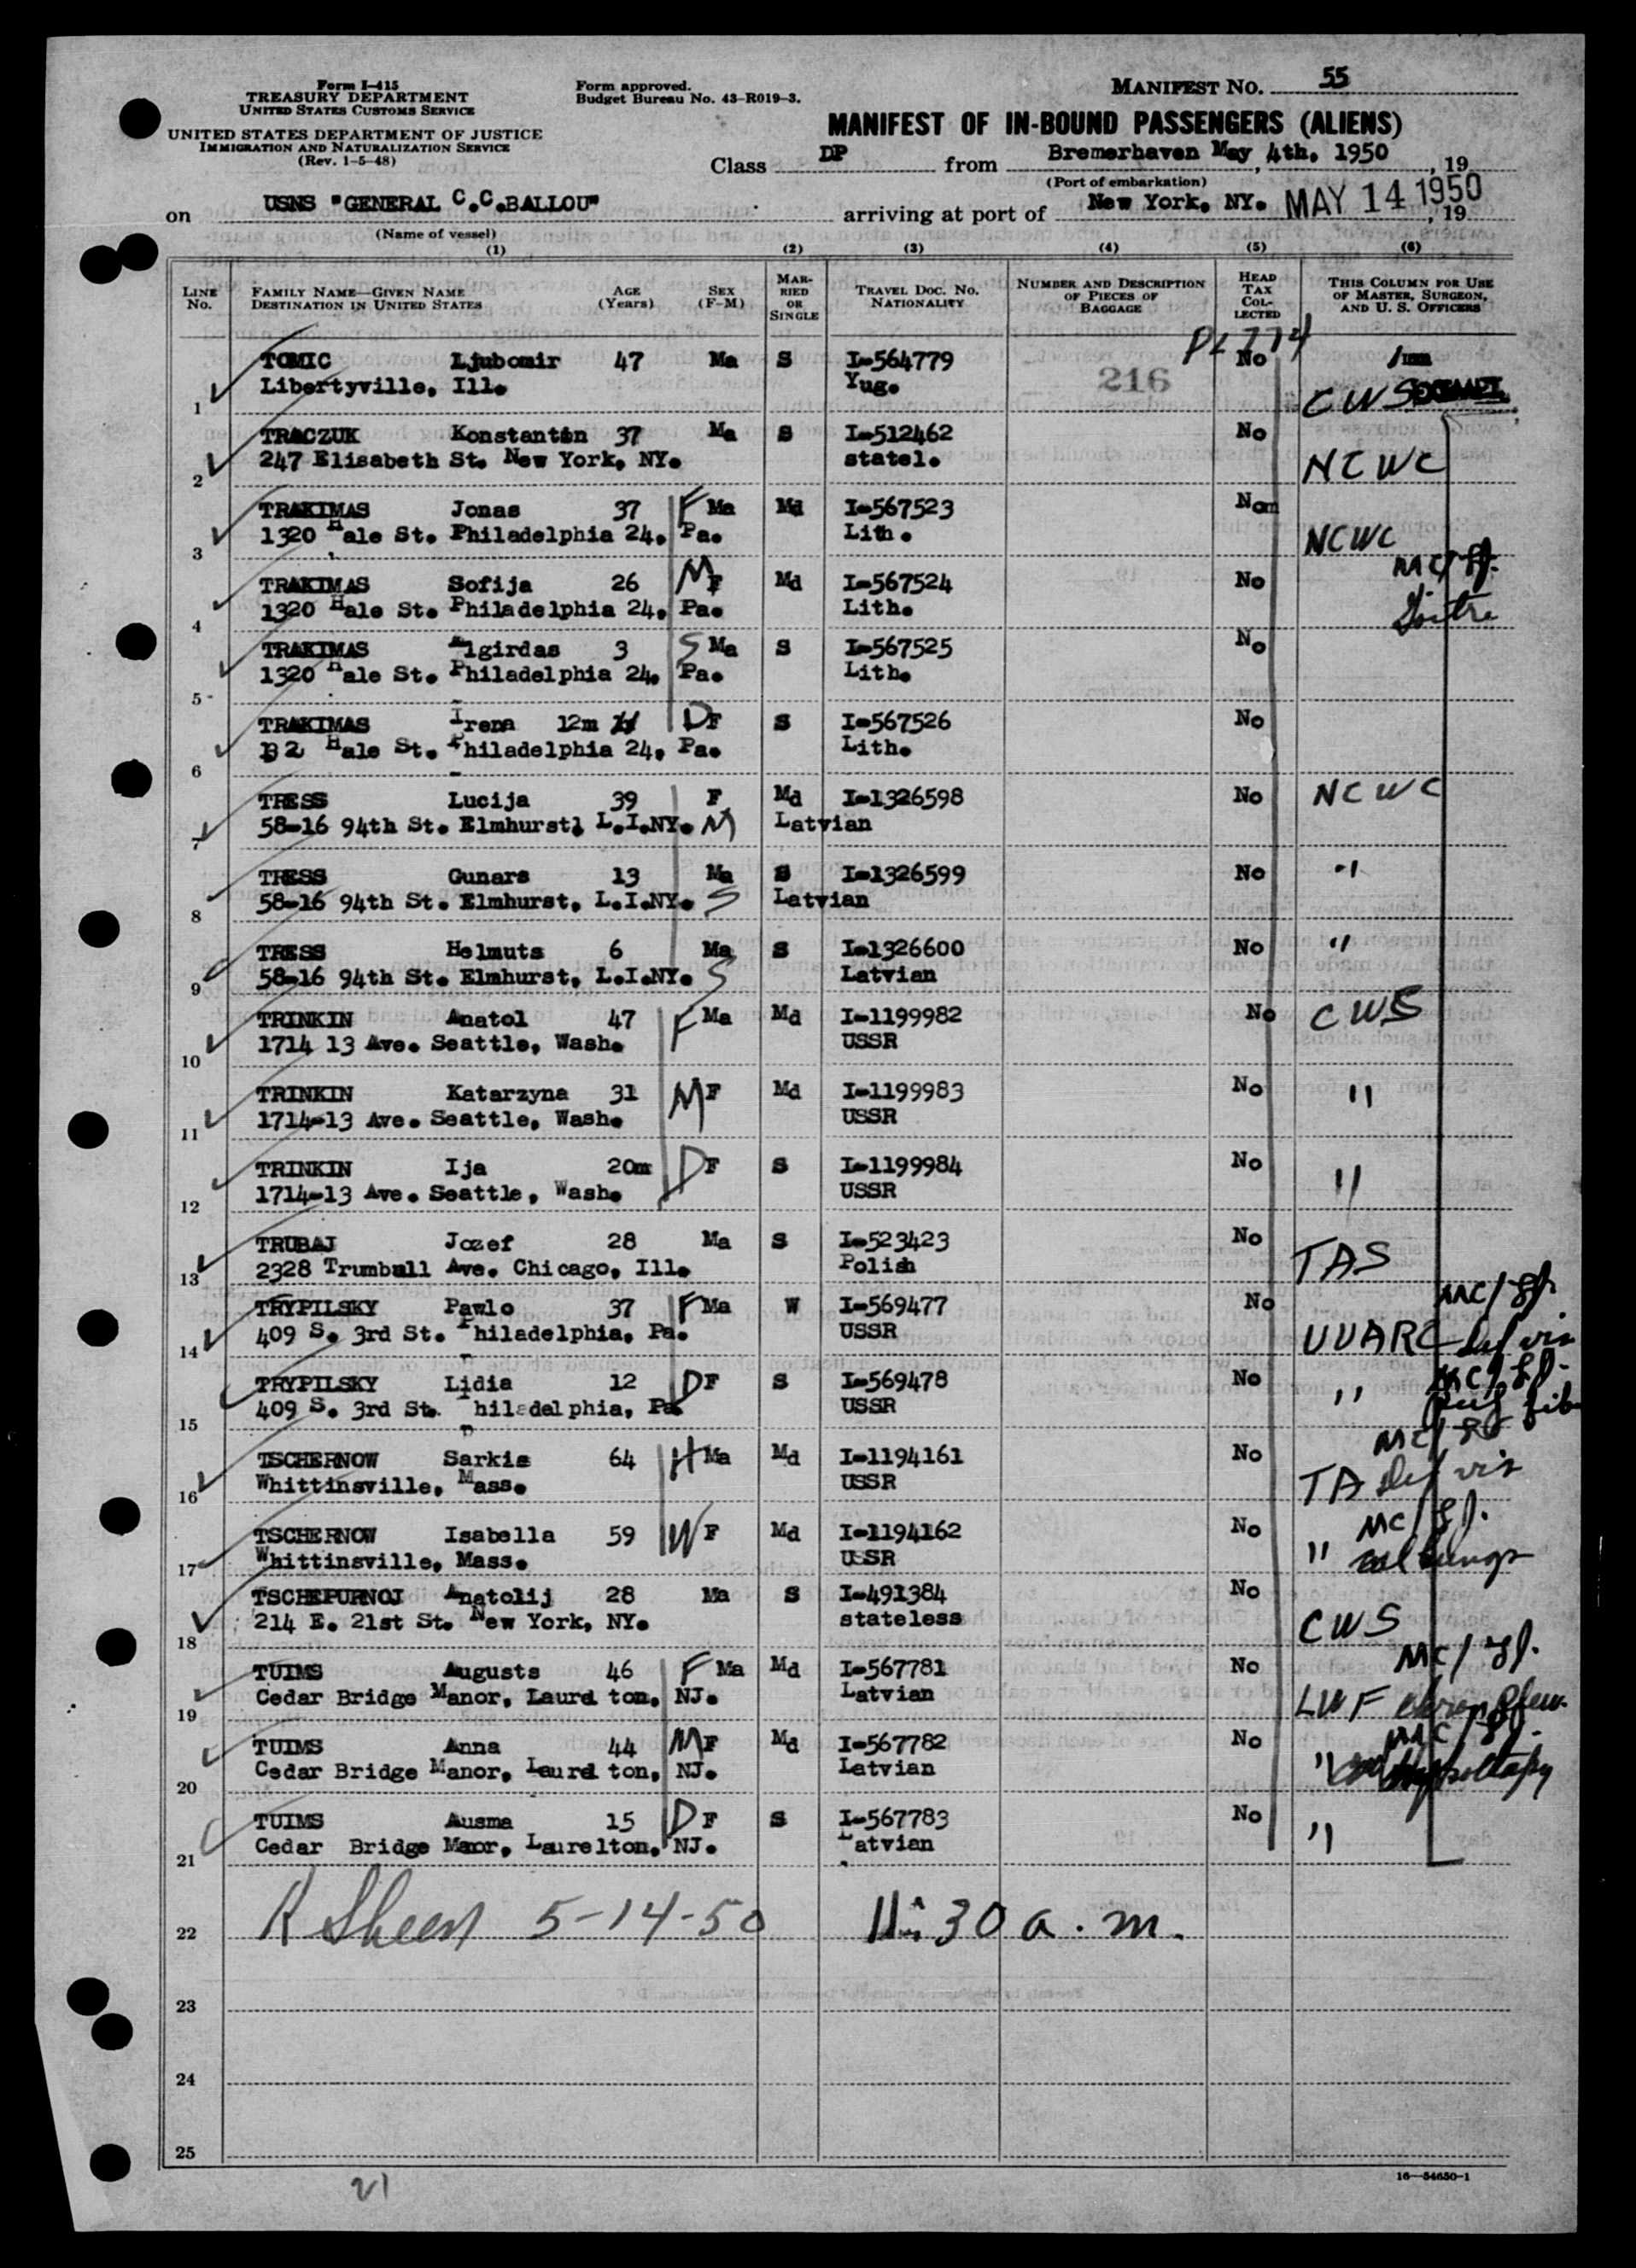 Form I-415
TREASURY DEPARTMENT
UNITED STATES CUSTOMS SERVICE
UNITED STATES DEPARTMENT OF JUSTICE
IMMIGRATION AND NATURALIZATION SERVICE
(Rev. 1-5-48)
Form approved.
Budget Bureau No. 43-R019-3.
MANIFEST NO. 55
MANIFEST OF IN-BOUND PASSENGERS (ALIENS)
Class DP from Bremerhaven May 4th. 1950, 19
(Port of embarkation)
on USNS "GENERAL C.C.BALLOU" arriving at port of New York, NY. MAY 14 1950, 19
(Name of vessel)
(1) (2) (3) (4) (5) (6)
LINE No. FAMILY NAME—GIVEN NAME DESTINATION IN UNITED STATES AGE (Years) SEX (F-M) MARRIED OR SINGLE TRAVEL DOC. NO. NATIONALITY NUMBER AND DESCRIPTION OF PIECES OF BAGGAGE HEAD TAX COLLECTED THIS COLUMN FOR USE OF MASTER, SURGEON, AND U. S. OFFICERS
TOMIC Ljubomir 47 Ma S I-564779 216 No
1 Libertyville, Ill. Yug. CWS
TRACZUK Konstantin 37 Ma S I-512462 No
2 247 Elisabeth St. New York, NY. statel. NCWC
TRAKIMAS Jonas 37 F Ma Md I-567523 No
3 1320 Hale St. Philadelphia 24, Pa. Lith. NCWC
TRAKIMAS Sofija 26 M F Md I-567524 No
4 1320 Hale St. Philadelphia 24, Pa. Lith. Goitre
TRAKIMAS Algirdas 3 S Ma S I-567525 No
5 1320 Hale St. Philadelphia 24, Pa. Lith.
TRAKIMAS Irena 12m D F S I-567526 No
6 Hale St. Philadelphia 24, Pa. Lith.
TRESS Lucija 39 F Md I-1326598 No NCWC
7 58-16 94th St. Elmhurst, L.I.NY. M Latvian
TRESS Gunars 13 Ma S I-1326599 No "
8 58-16 94th St. Elmhurst, L.I.NY. S Latvian
TRESS Helmuts 6 Ma S I-1326600 No "
9 58-16 94th St. Elmhurst, L.I.NY. S Latvian
TRINKIN Anatol 47 F Ma Md I-1199982 No CWS
10 1714 13 Ave. Seattle, Wash. USSR
TRINKIN Katarzyna 31 M F Md I-1199983 No "
11 1714-13 Ave. Seattle, Wash. USSR
TRINKIN Ija 20m D F S I-1199984 No "
12 1714-13 Ave. Seattle, Wash. USSR
TRUBAJ Jozef 28 Ma S I-523423 No
13 2328 Trumball Ave. Chicago, Ill. Polish TAS
TRYPILSKY Pawlo 37 F Ma W I-569477 No
14 409 S. 3rd St. Philadelphia, Pa. USSR UUARC def vis
TRYPILSKY Lidia 12 D F S I-569478 No "
15 409 S. 3rd St. Philadelphia, Pa. USSR
TSCHERNOW Sarkis 64 H Ma Md I-1194161 No
16 Whittinsville, Mass. USSR TA def vis
TSCHERNOW Isabella 59 W F Md I-1194162 No
17 Whittinsville, Mass. USSR " lungs
TSCHEPURNOJ Anatolij 28 Ma S I-491384 No
18 214 E. 21st St. New York, NY. stateless CWS
TUIMS Augusts 46 F Ma Md I-567781 No
19 Cedar Bridge Manor, Laurel ton, NJ. Latvian LWF
TUIMS Anna 44 M F Md I-567782 No
20 Cedar Bridge Manor, Laurel ton, NJ. Latvian "
TUIMS Ausma 15 D F S I-567783 No
21 Cedar Bridge Manor, Laurelton, NJ. Latvian "
22 5-14-50 11:30 a.m.
23
24
25
16—54650-1
21